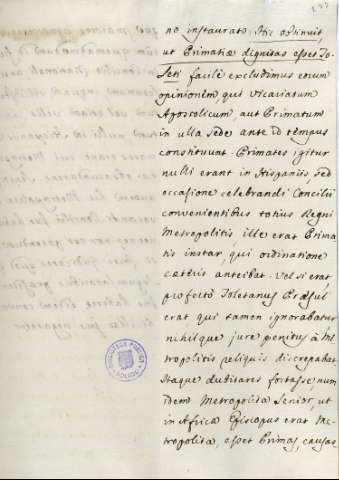 no instaurato. Hic obtinuit,
ut Primatiæ dignitas esset To-
leti facilè excludimus eorum
opinionem, qui Vicariatum
Apostolicum, aut Primatum
in ulla Sede ante id tempus
constituunt. Primates igitur
nulli erant in Hispaniis, sed
occasione celebrandi Concilii
convenientibus totius Regni
Metropolitis ille erat Prima
tis instar, qui ordinatione
cæteris anteibat. Vel si erat,
profectò Toletanus Præsul
erat, qui tamen ignorabatur
nihilque jure penitus à Me-
tropolitis reliquis discrepabat
Itaque dubitares fortasse, num
idem Metropolita Senior, ut
in Africa Episcopus erat Me-
tropolita, esset Primas, causas
BIBLIOTECA PUBLICA
TOLEDO